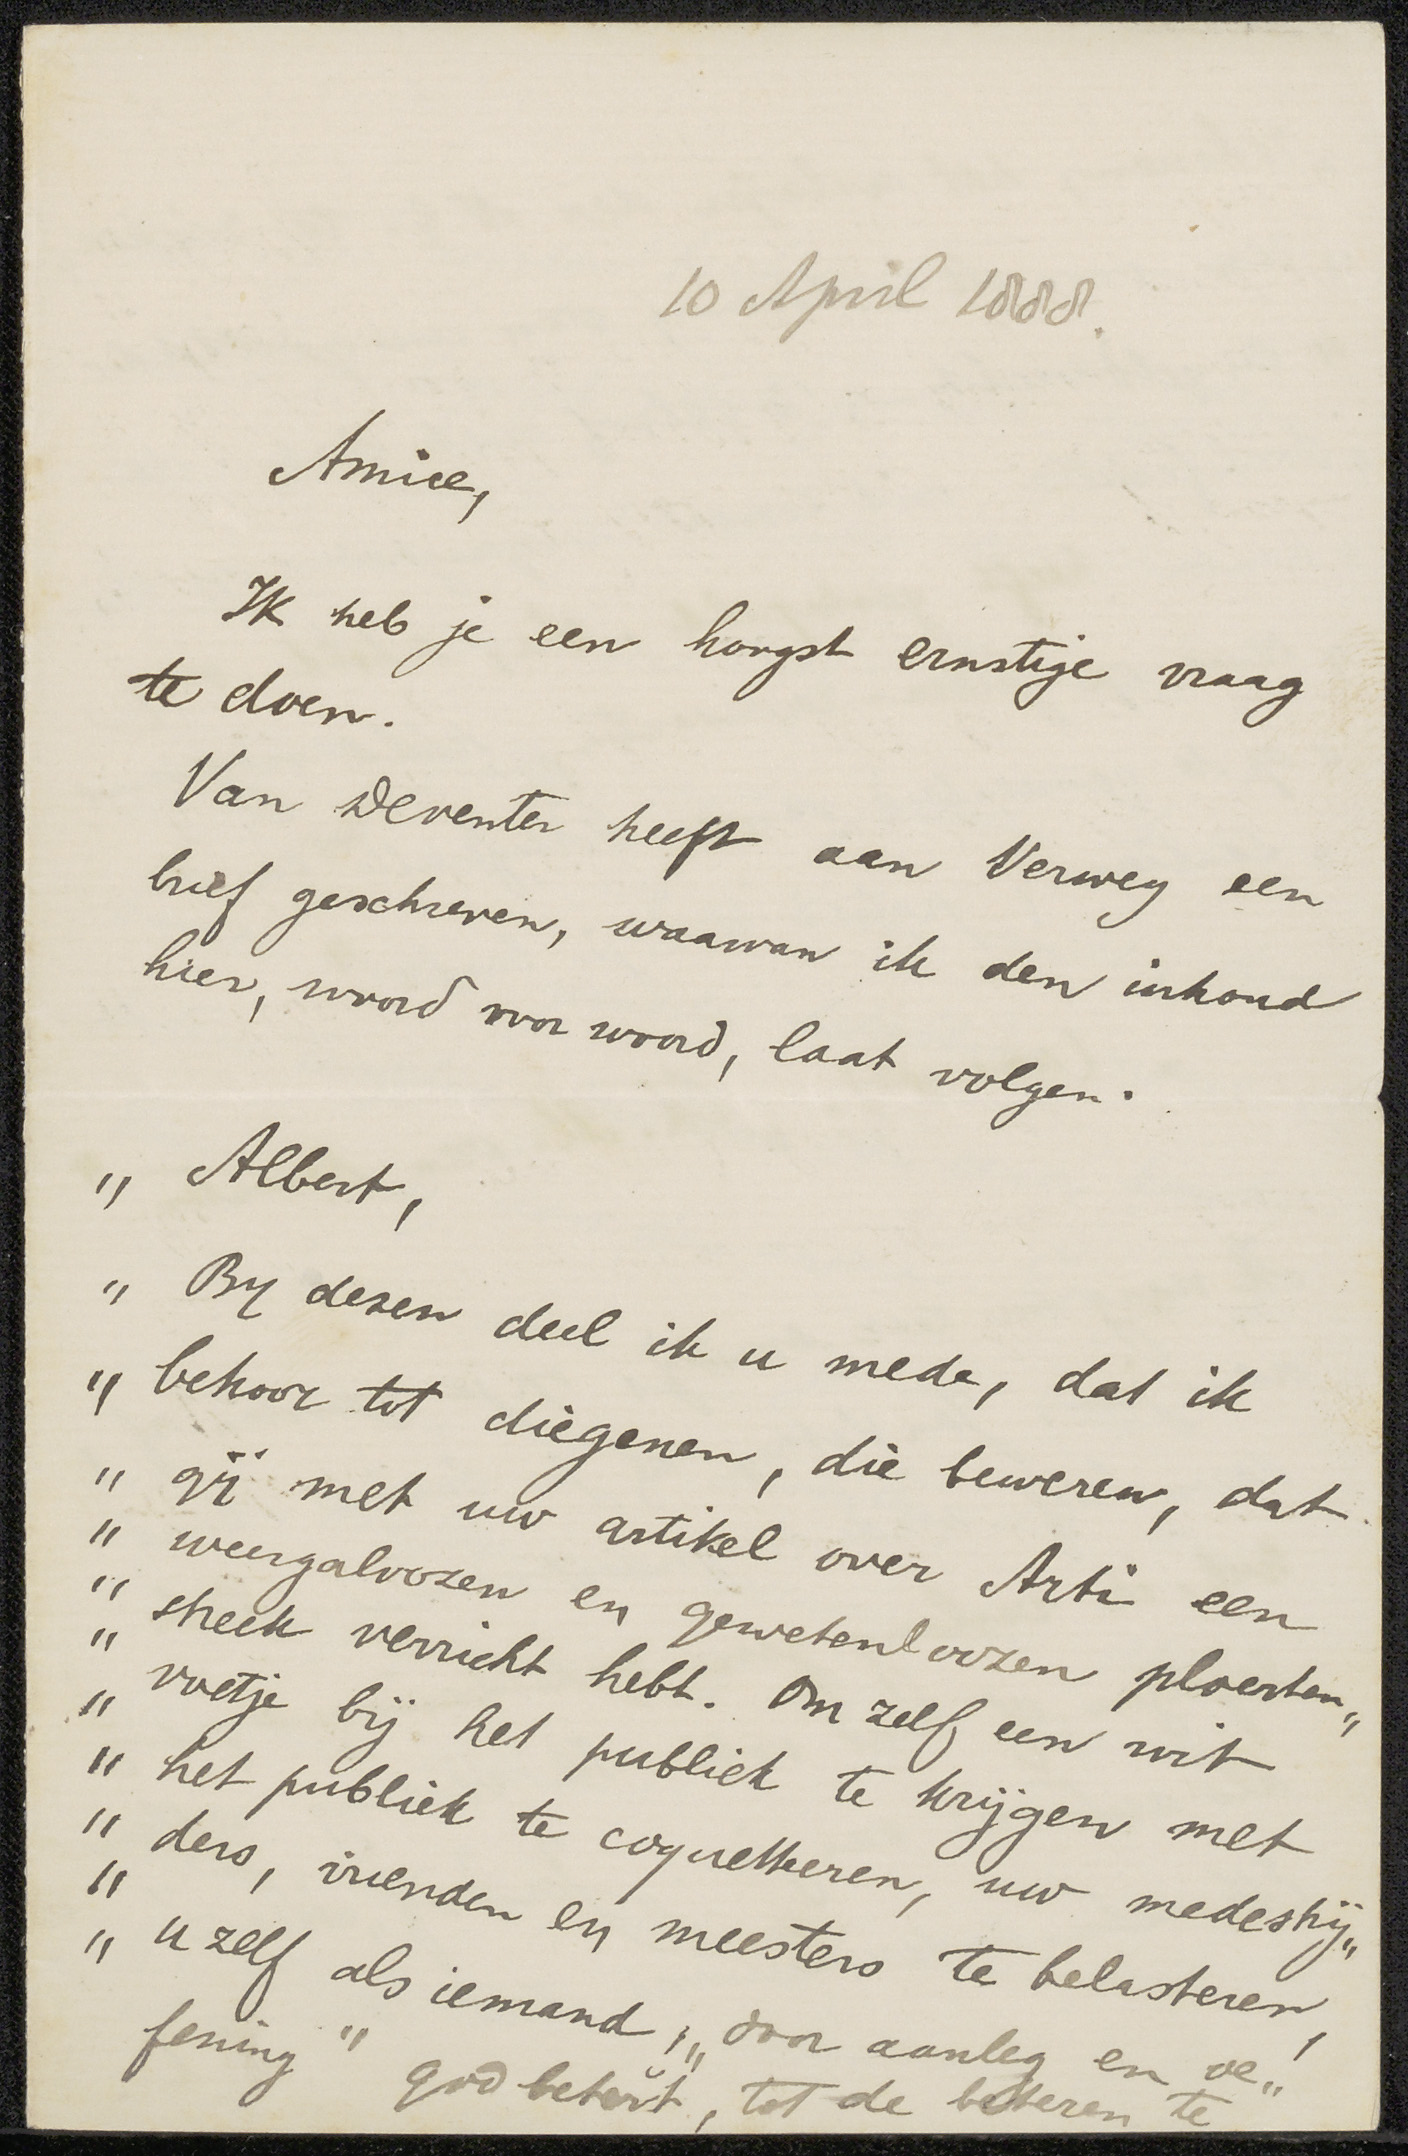 10 April 1888.
Amice,
Ik heb je een hoogst ernstige vraag
te doen.
Van Deventer heeft aan Verwey een
brief geschreven, waarvan ik den inhoud
hier, woord voor woord, laat volgen.
„ Albert,
„ By dezen deel ik u mede, dat ik
„ behoor tot diegenen, die beweren, dat
„ gij met uw artikel over Arti een
„ weergaloozen en gewetenloozen ploerten„
„ streek verricht hebt. Om zelf een wit
„ voetje bij het publiek te krijgen met
„ het publiek te coquetteeren, uw medestrij„
„ ders, vrienden en meesters te belasteren,
„ u zelf als iemand, „ door aanleg en oe„
„ fening " god betert, tot de beteren te